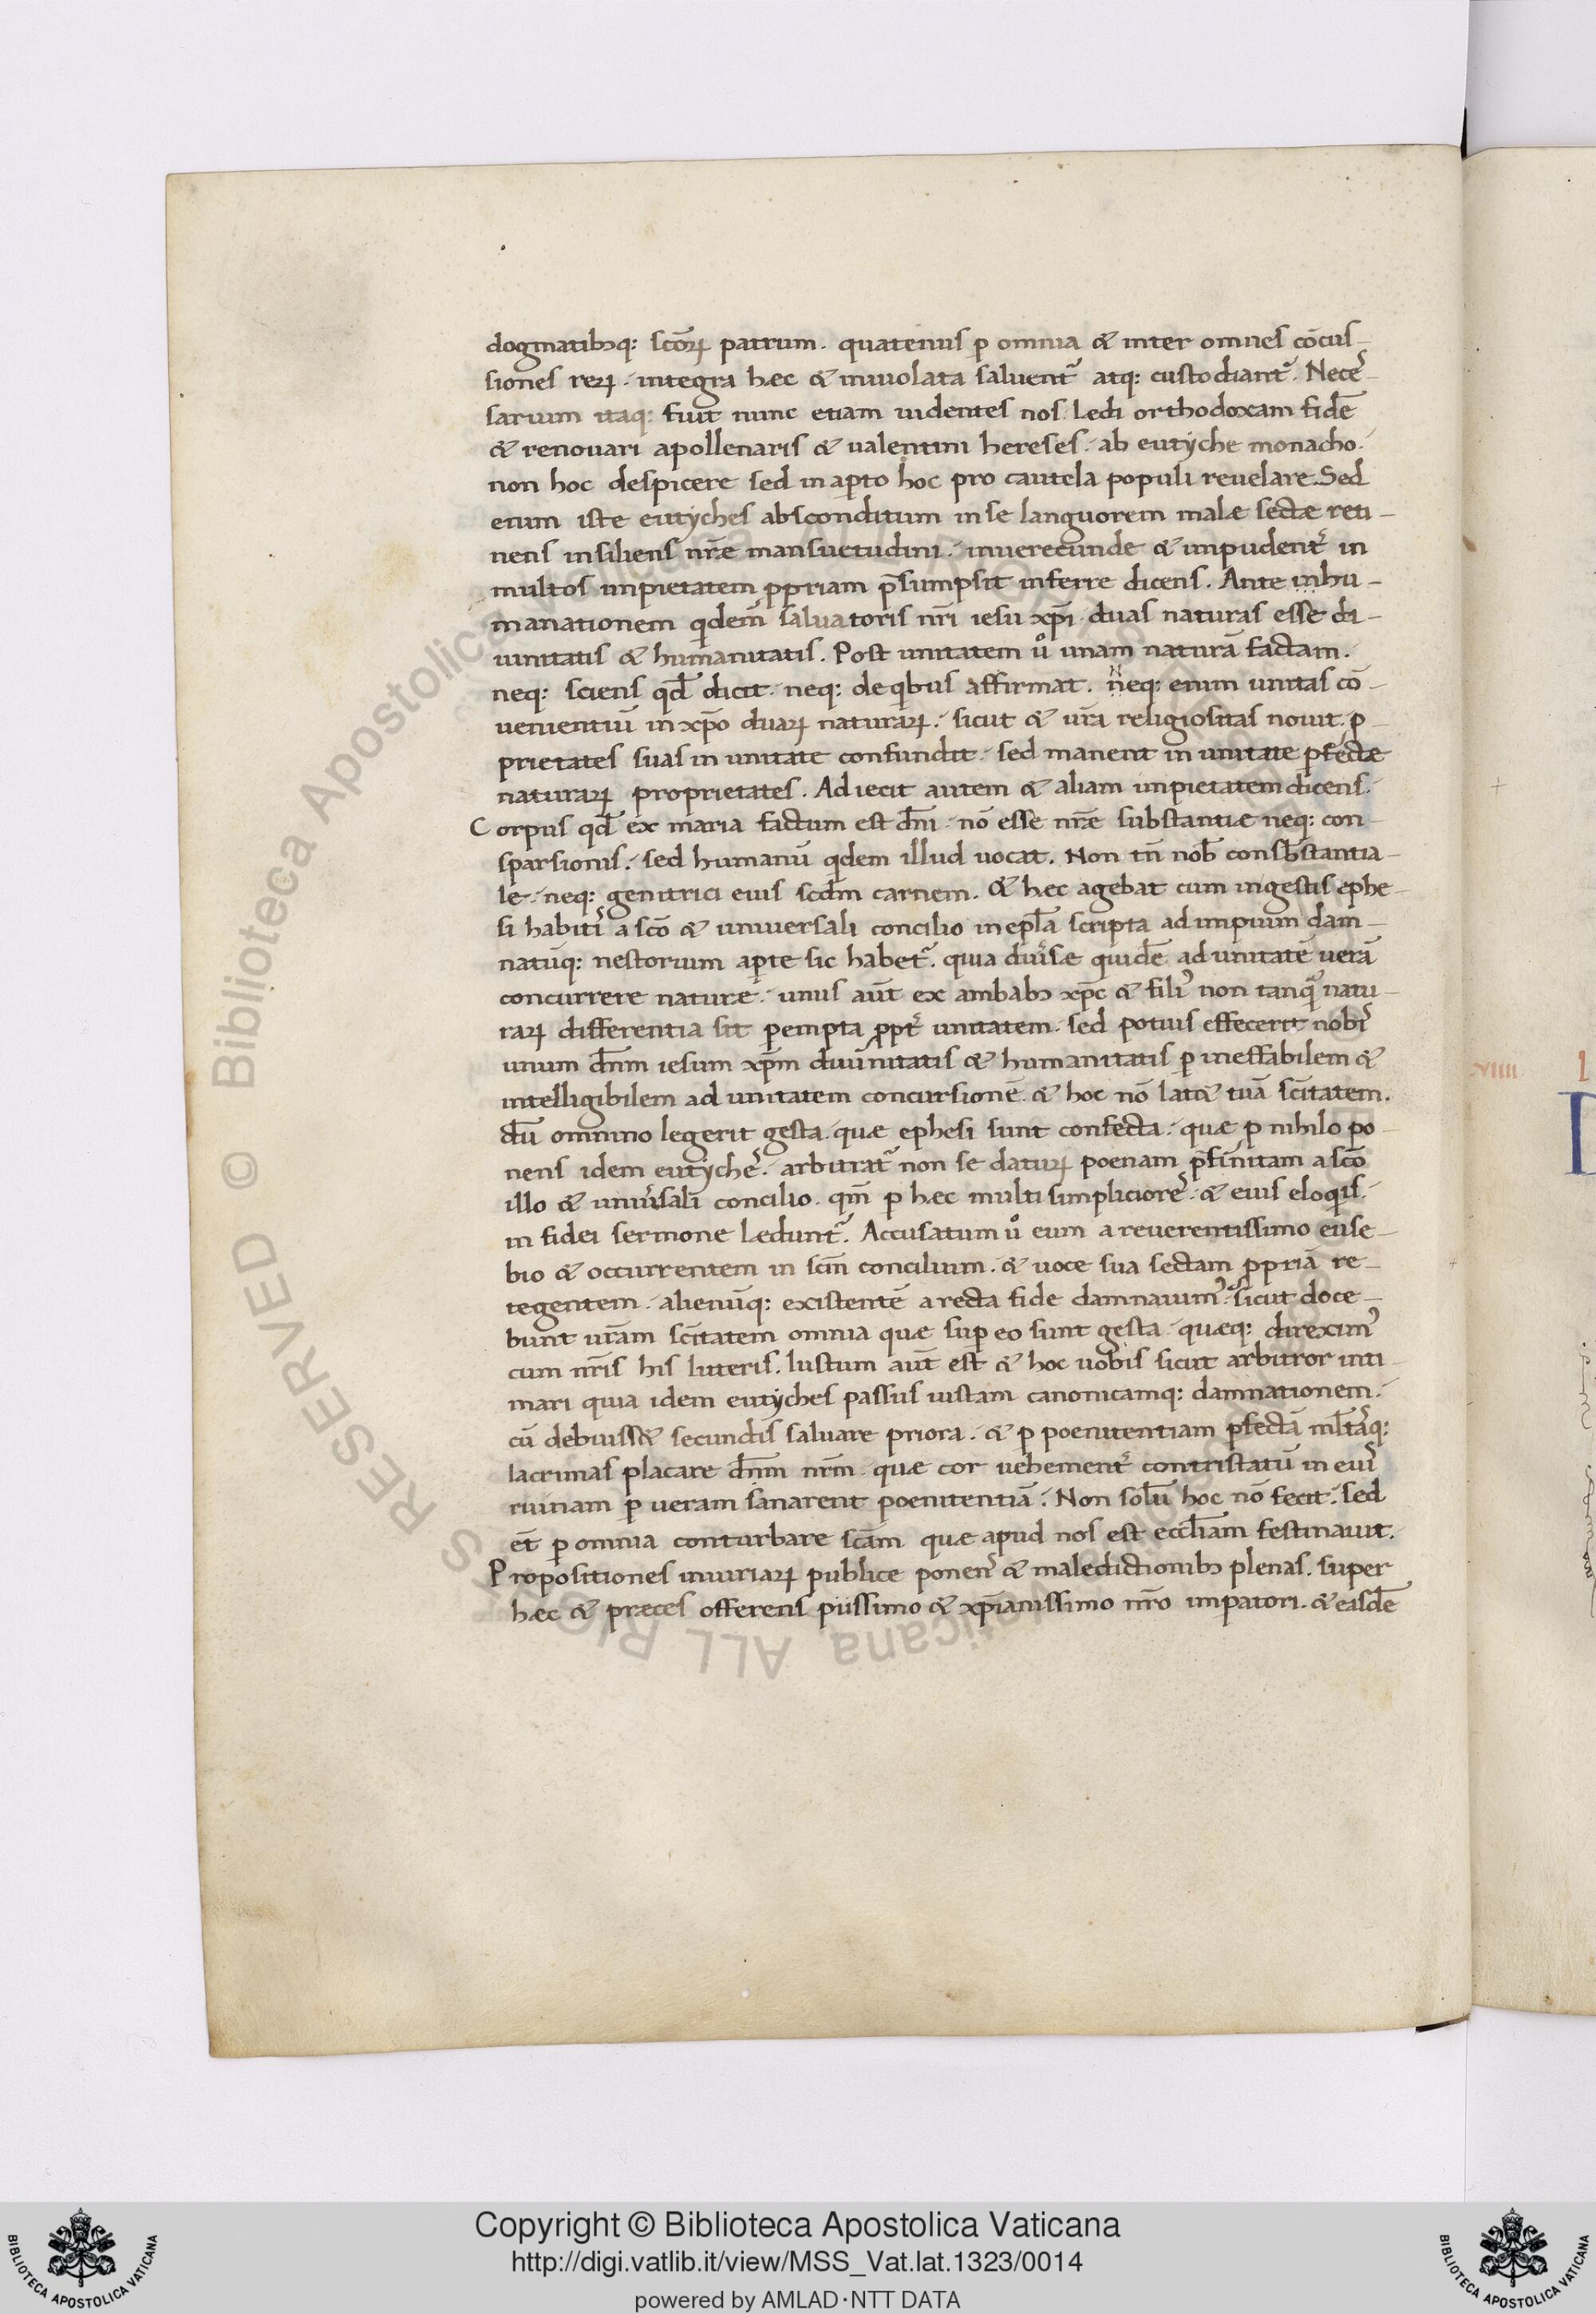 dogmatibꝫq: scōꝝ patrum. quatenus ꝑ omnia & inter omnes cōcus-
siones reꝝ. integra hęc & inuiolata saluent᷑ atq: custodiant᷑. Neces-
sarium itaq: fuit nunc etiam uidentes nos lędi orthodoxam fidē
& renouari apollenaris & ualentini hereses. ab eutyche monacho.
non hoc despicere sed in aꝑto hoc pro cautela populi reuelare. Sed
enim iste eutyches absconditum in se languorem malæ sectæ reti-
nens insiliens nr̄æ mansuetudini. inuerecunde & impudent᷑ in
multos impietatem ꝓpriam p̄sumpsit inferre dicens. Ante inhu-
manationem qidem saluatoris nr̄i iesu xp̄i duas naturas esse di-
uinitatis & humanitatis. Post unitatem uͦ unam naturā factam.
neq: sciens qđ dicit. neq: de qibus affirmat. neq: enim unitas cō-
uenientiū in xp̄o duaꝝ naturaꝝ. sicut & ur̄a religiositas nouit. ꝓ-
prietates suas in unitate confundit. sed manent in unitate ꝑfectæ
naturaꝝ proprietates. Adiecit autem & aliam impietatem dicens.
Corpus qđ ex maria factum est dn̄i. nō esse nr̄æ substantiæ neq: con-
sparsionis. sed humanū qidem illud uocat. Non tn̄ nob̄ consb̄stantia-
le. neq: genitrici eius scd̄m carnem. & hęc agebat cum in gestis ephe-
si habitis a scō & uniuersali concilio in epl̄a scripta ad impium dam-
natūq: nestorium aꝑte sic habet᷑. quia diuersæ quidē ad unitatē uerā
concurrere naturæ. unus aūt ex ambabꝫ xp̄c & filiꝰ non tanqͣ natu-
raꝝ differentia sit ꝑempta ꝓpt᷑ unitatem. sed potius effecerit nobis
unum dn̄m iesum xp̄m diuinitatis & humanitatis ꝑ ineffabilem &
intelligibilem ad unitatem concursionē. & hoc nō lat& tuā sc̄itatem.
dū omnino legerit gesta quæ ephesi sunt confecta. quæ ꝑ nihilo po-
nens idem eutyches. arbitrat᷑ non se datuꝝ poenam p̄finitam a scō
illo & uniuersali concilio. qm̄ ꝑ hęc multi simpliciores & eius eloqis.
in fidei sermone lędunt᷑. Accusatum uͦ eum a reuerentissimo euse-
bio & occurrentem in sc̄m concilium. & uoce sua sectam ꝓpriā re-
tegentem. alienūq: existentē a recta fide damnauimꝰ. sicut doce-
bunt ur̄am sc̄itatem omnia quæ suꝑ eo sunt gesta. quæq: direximꝰ
cum nr̄is his litteris. Iustum aūt est & hoc uobis sicut arbitror inti-
mari quia idem eutyches passus iustam canonicamq: damnationem.
cū debuiss& secundis saluare priora. & ꝑ poenitentiam ꝑfectā ml̄tasq:
lacrimas placare dn̄m nr̄m. quæ cor uehement᷑ contristatū in eius
ruinam ꝑ ueram sanarent poenitentiā. Non solū hoc nō fecit. sed
et̄ ꝑ omnia conturbare sc̄am quæ apud nos est eccl̄iam festinauit.
Propositiones iniuriaꝝ publice ponens & maledictionibꝫ plenas. super
hęc & præces offerens piissimo & xp̄ianissimo nr̄o impatori. & easdē
VIIII
Copyright © Biblioteca Apostolica Vaticana
http://digi.vatlib.it/view/MSS_Vat.lat.1323/0014
powered by AMLAD·NTT DATA